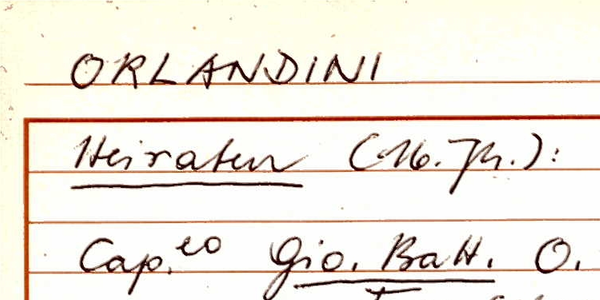 ORLANDINI
Heiraten (16. Jh.):
Cap.eo Gio. Batt. O.